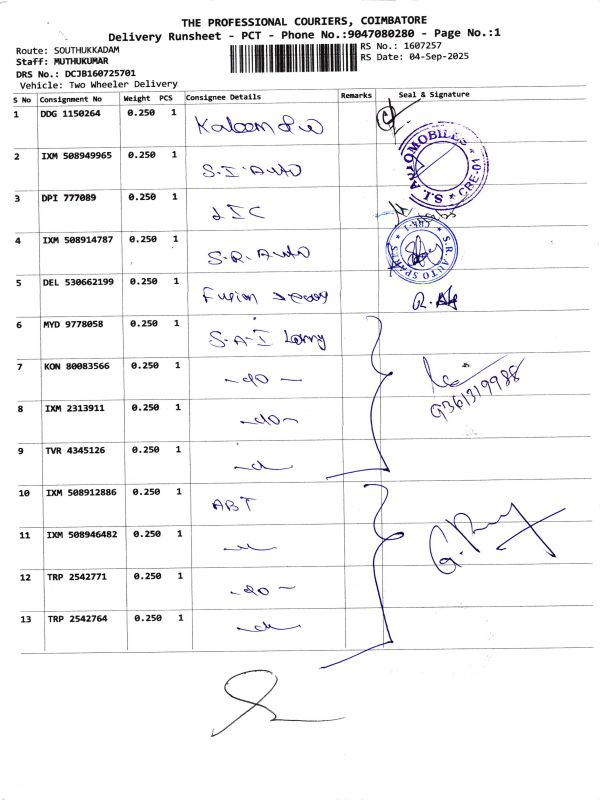 THE PROFESSIONAL COURIERS, COIMBATORE
Delivery Runsheet - PCT - Phone No.:9047080280 - Page No.:1
Route: SOUTHUKKADAM
RS No.: 1607257
Staff: MUTHUKUMAR
RS Date: 04-Sep-2025
DRS No.: DCJB160725701
Vehicle: Two Wheeler Delivery
S No Consignment No Weight PCS Consignee Details Remarks Seal & Signature
1 DDG 1150264 0.250 1
2 IXM 508949965 0.250 1 S.I. Auto
S.I. AUTOMOBILES * CBE-01 *
3 DPI 777089 0.250 1 LIC
4 IXM 508914787 0.250 1 S.R. Auto
S.R. AUTO SPARES * CBE-1 *
5 DEL 530662199 0.250 1 Fusion
6 MYD 9778058 0.250 1 S.A.I Lorry
7 KON 80083566 0.250 1 -do-
9361319988
8 IXM 2313911 0.250 1 -do-
9 TVR 4345126 0.250 1
10 IXM 508912886 0.250 1 ABT
11 IXM 508946482 0.250 1
12 TRP 2542771 0.250 1 -do-
13 TRP 2542764 0.250 1